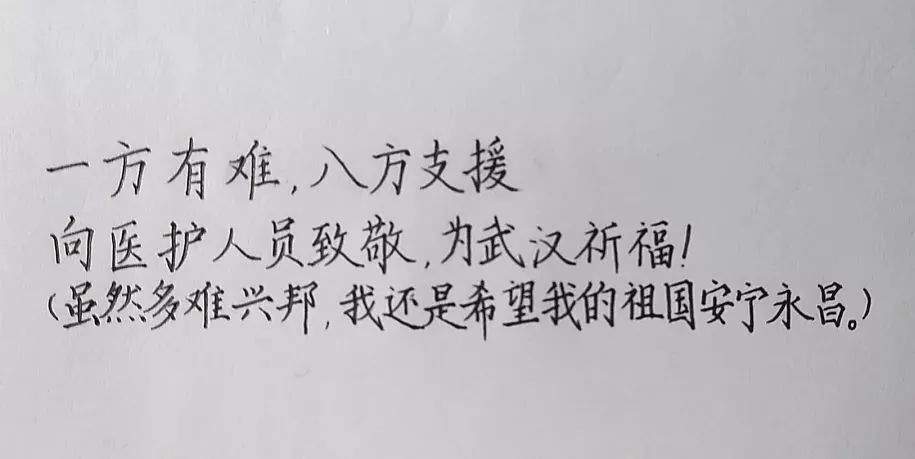 一方有难,八方支援
向医护人员致敬,为武汉祈福!
(虽然多难兴邦,我还是希望我的祖国安宁永昌。)